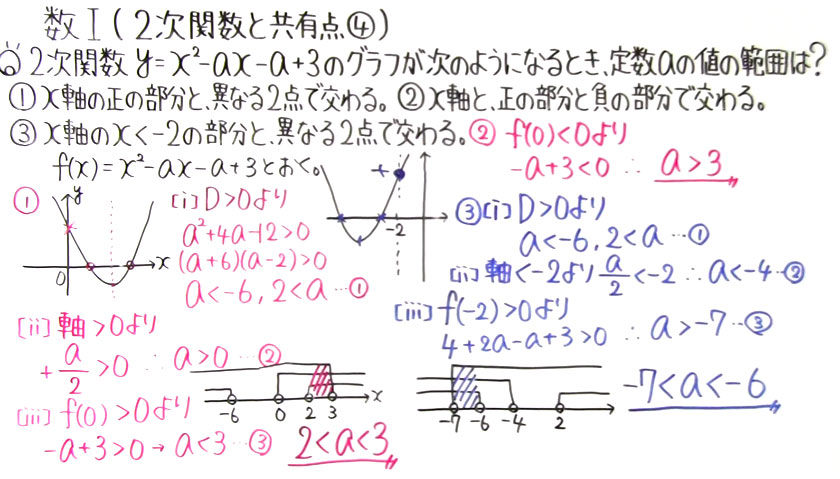 数Ⅰ(2次関数と共有点④)
2次関数 y=x²-ax-a+3のグラフが次のようになるとき、定数aの値の範囲は?
①x軸の正の部分と、異なる2点で交わる。②x軸と、正の部分と負の部分で交わる。
③x軸のx<-2の部分と、異なる2点で交わる。
f(x)=x²-ax-a+3とおく。
①
y
x
0
[i]D>0より
a²+4a-12>0
(a+6)(a-2)>0
a<-6, 2<a…①
[ii]軸>0より
+a/2>0 ∴ a>0…②
[iii]f(0)>0より
-a+3>0→a<3…③
-6 0 2 3 x
2<a<3
② f(0)<0より
-a+3<0 ∴ a>3
+
-2
③[i]D>0より
a<-6, 2<a…①
[ii]軸<-2より a/2<-2 ∴a<-4…②
[iii]f(-2)>0より
4+2a-a+3>0 ∴a>-7…③
-7 -6 -4 2
-7<a<-6